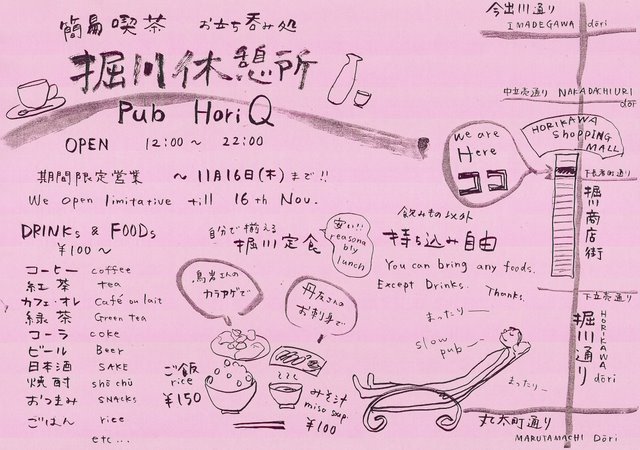 簡易喫茶 お立ち呑み処
掘川休憩所
Pub HoriQ
OPEN 12:00~ 22:00
期間限定営業 ~11月16日(木)まで!!
We open limitative till 16th Nov.
DRINKs & FOODs
¥100~
コーヒー coffee
紅茶 tea
カフェ・オレ Café au lait
緑茶 Green tea
コーラ coke
ビール Beer
日本酒 SAKE
焼酎 shō chū
おつまみ SNACKs
ごはん rice
etc...
自分で揃える
掘川定食
安い!!
reasona
bly
lunch
鳥岩さんの
カラアゲで
丹友さんの
お刺身で
ご飯
rice
¥150
みそ汁
miso soup
¥100
飲みもの以外
持ち込み自由
You can bring any foods.
Except Drinks. Thanks.
まったりー
slow
pub
まったりー
今出川通り
IMADEGAWA dōri
中立売通り NAKADACHIURI
dōri
HORIKAWA
SHOPPING
MALL
We are
Here
ココ
下長者町通り
堀川商店街
下立売通り
堀川通り
HORIKAWA
dōri
丸太町通り
MARUTAMACHI Dōri